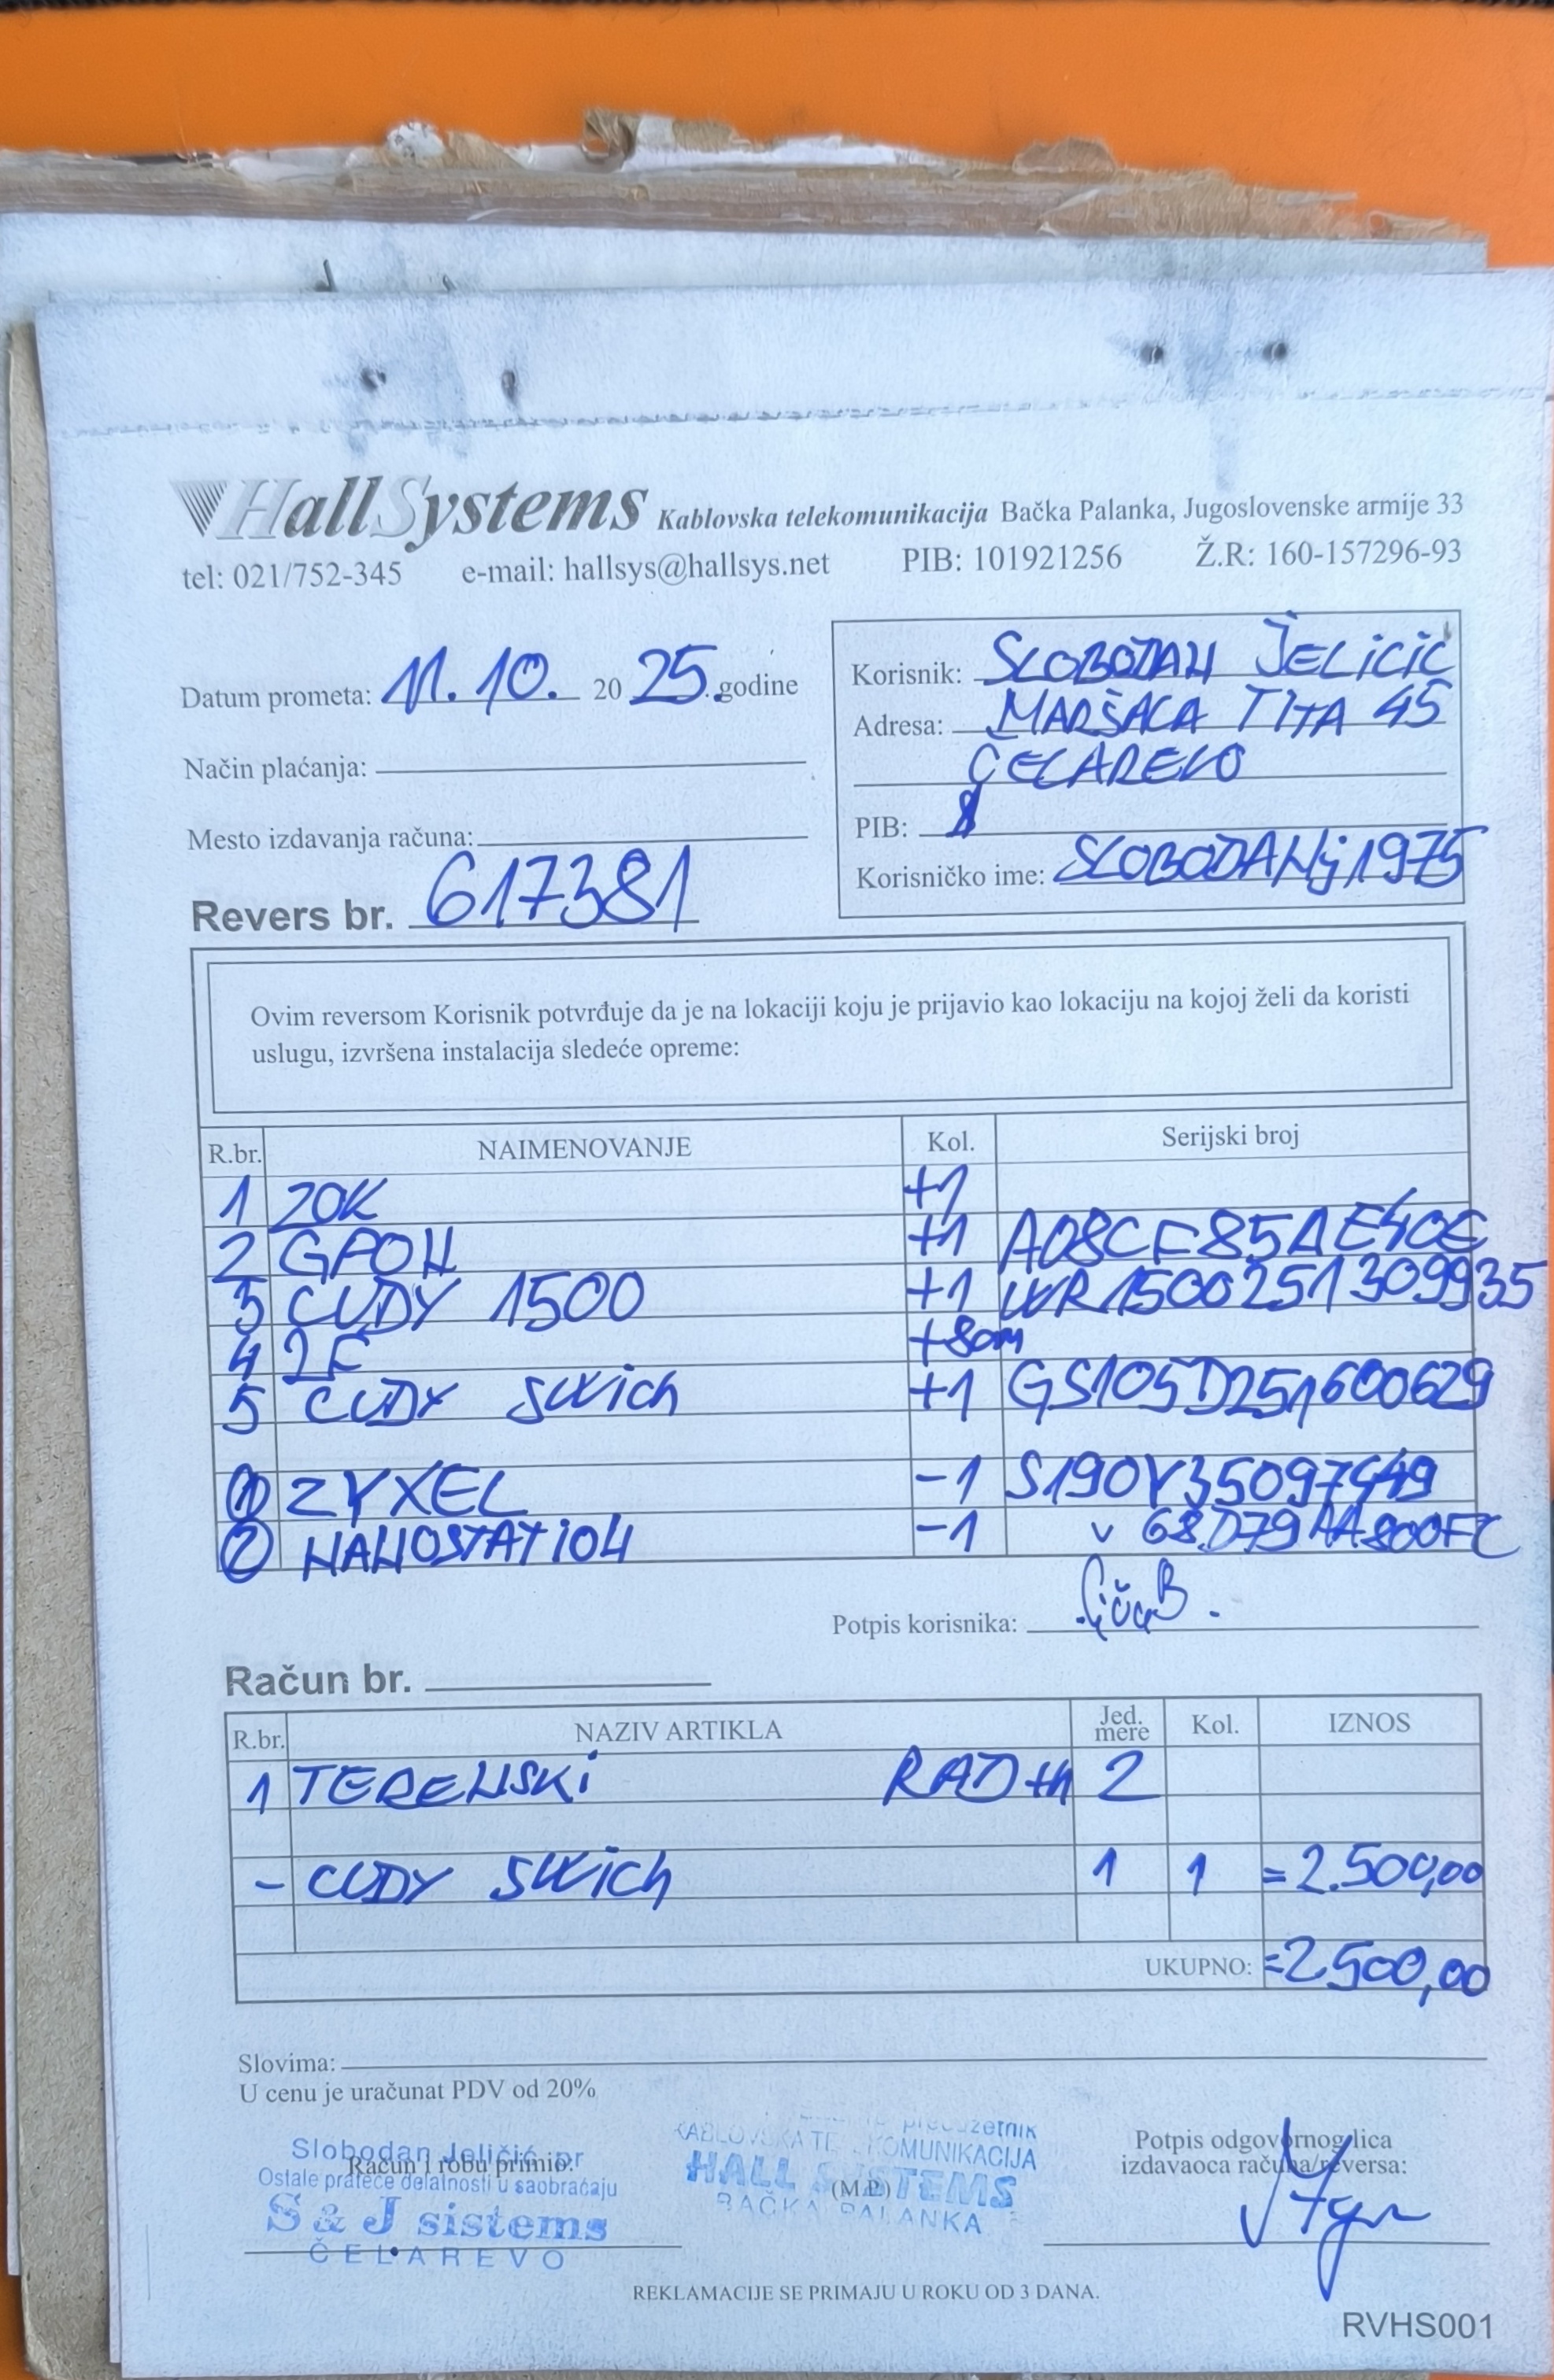 HallSystems Kablovska telekomunikacija Bačka Palanka, Jugoslovenske armije 33
tel: 021/752-345 e-mail: hallsys@hallsys.net PIB: 101921256 Ž.R: 160-157296-93
Datum prometa: 11.10. 2025. godine
Način plaćanja:
Mesto izdavanja računa:
Revers br. 617381
Korisnik: SLOBODAN JELIČIĆ
Adresa: MARŠALA TITA 45
ČELAREVO
PIB:
Korisničko ime: SLOBODANj1975
Ovim reversom Korisnik potvrđuje da je na lokaciji koju je prijavio kao lokaciju na kojoj želi da koristi
uslugu, izvršena instalacija sledeće opreme:
R.br. NAIMENOVANJE Kol. Serijski broj
1 ZOK +1
2 GPON +1 A08CF85AE40E
3 CUDY 1500 +1 WR1500251309935
4 2F +80m
5 CUDY SWich +1 GS105D251600629
1 ZYXEL -1 S190Y35097449
2 NANOSTATION -1 v 68D79AA800FC
Potpis korisnika:
Račun br.
R.br. NAZIV ARTIKLA Jed. mere Kol. IZNOS
1 TERENSKI RAD +h 2
- CUDY SWich 1 1 =2.500,00
UKUPNO: =2.500,00
Slovima:
U cenu je uračunat PDV od 20%
Slobodan Jeličić pr
Račun i robu primio:
Ostale prateće delatnosti u saobraćaju
S & J sistems
ČELAREVO
preduzetnik
KABLOVSKA TELEKOMUNIKACIJA
HALL SYSTEMS
(M.P.)
BAČKA PALANKA
Potpis odgovornog lica
izdavaoca računa/reversa:
REKLAMACIJE SE PRIMAJU U ROKU OD 3 DANA.
RVHS001